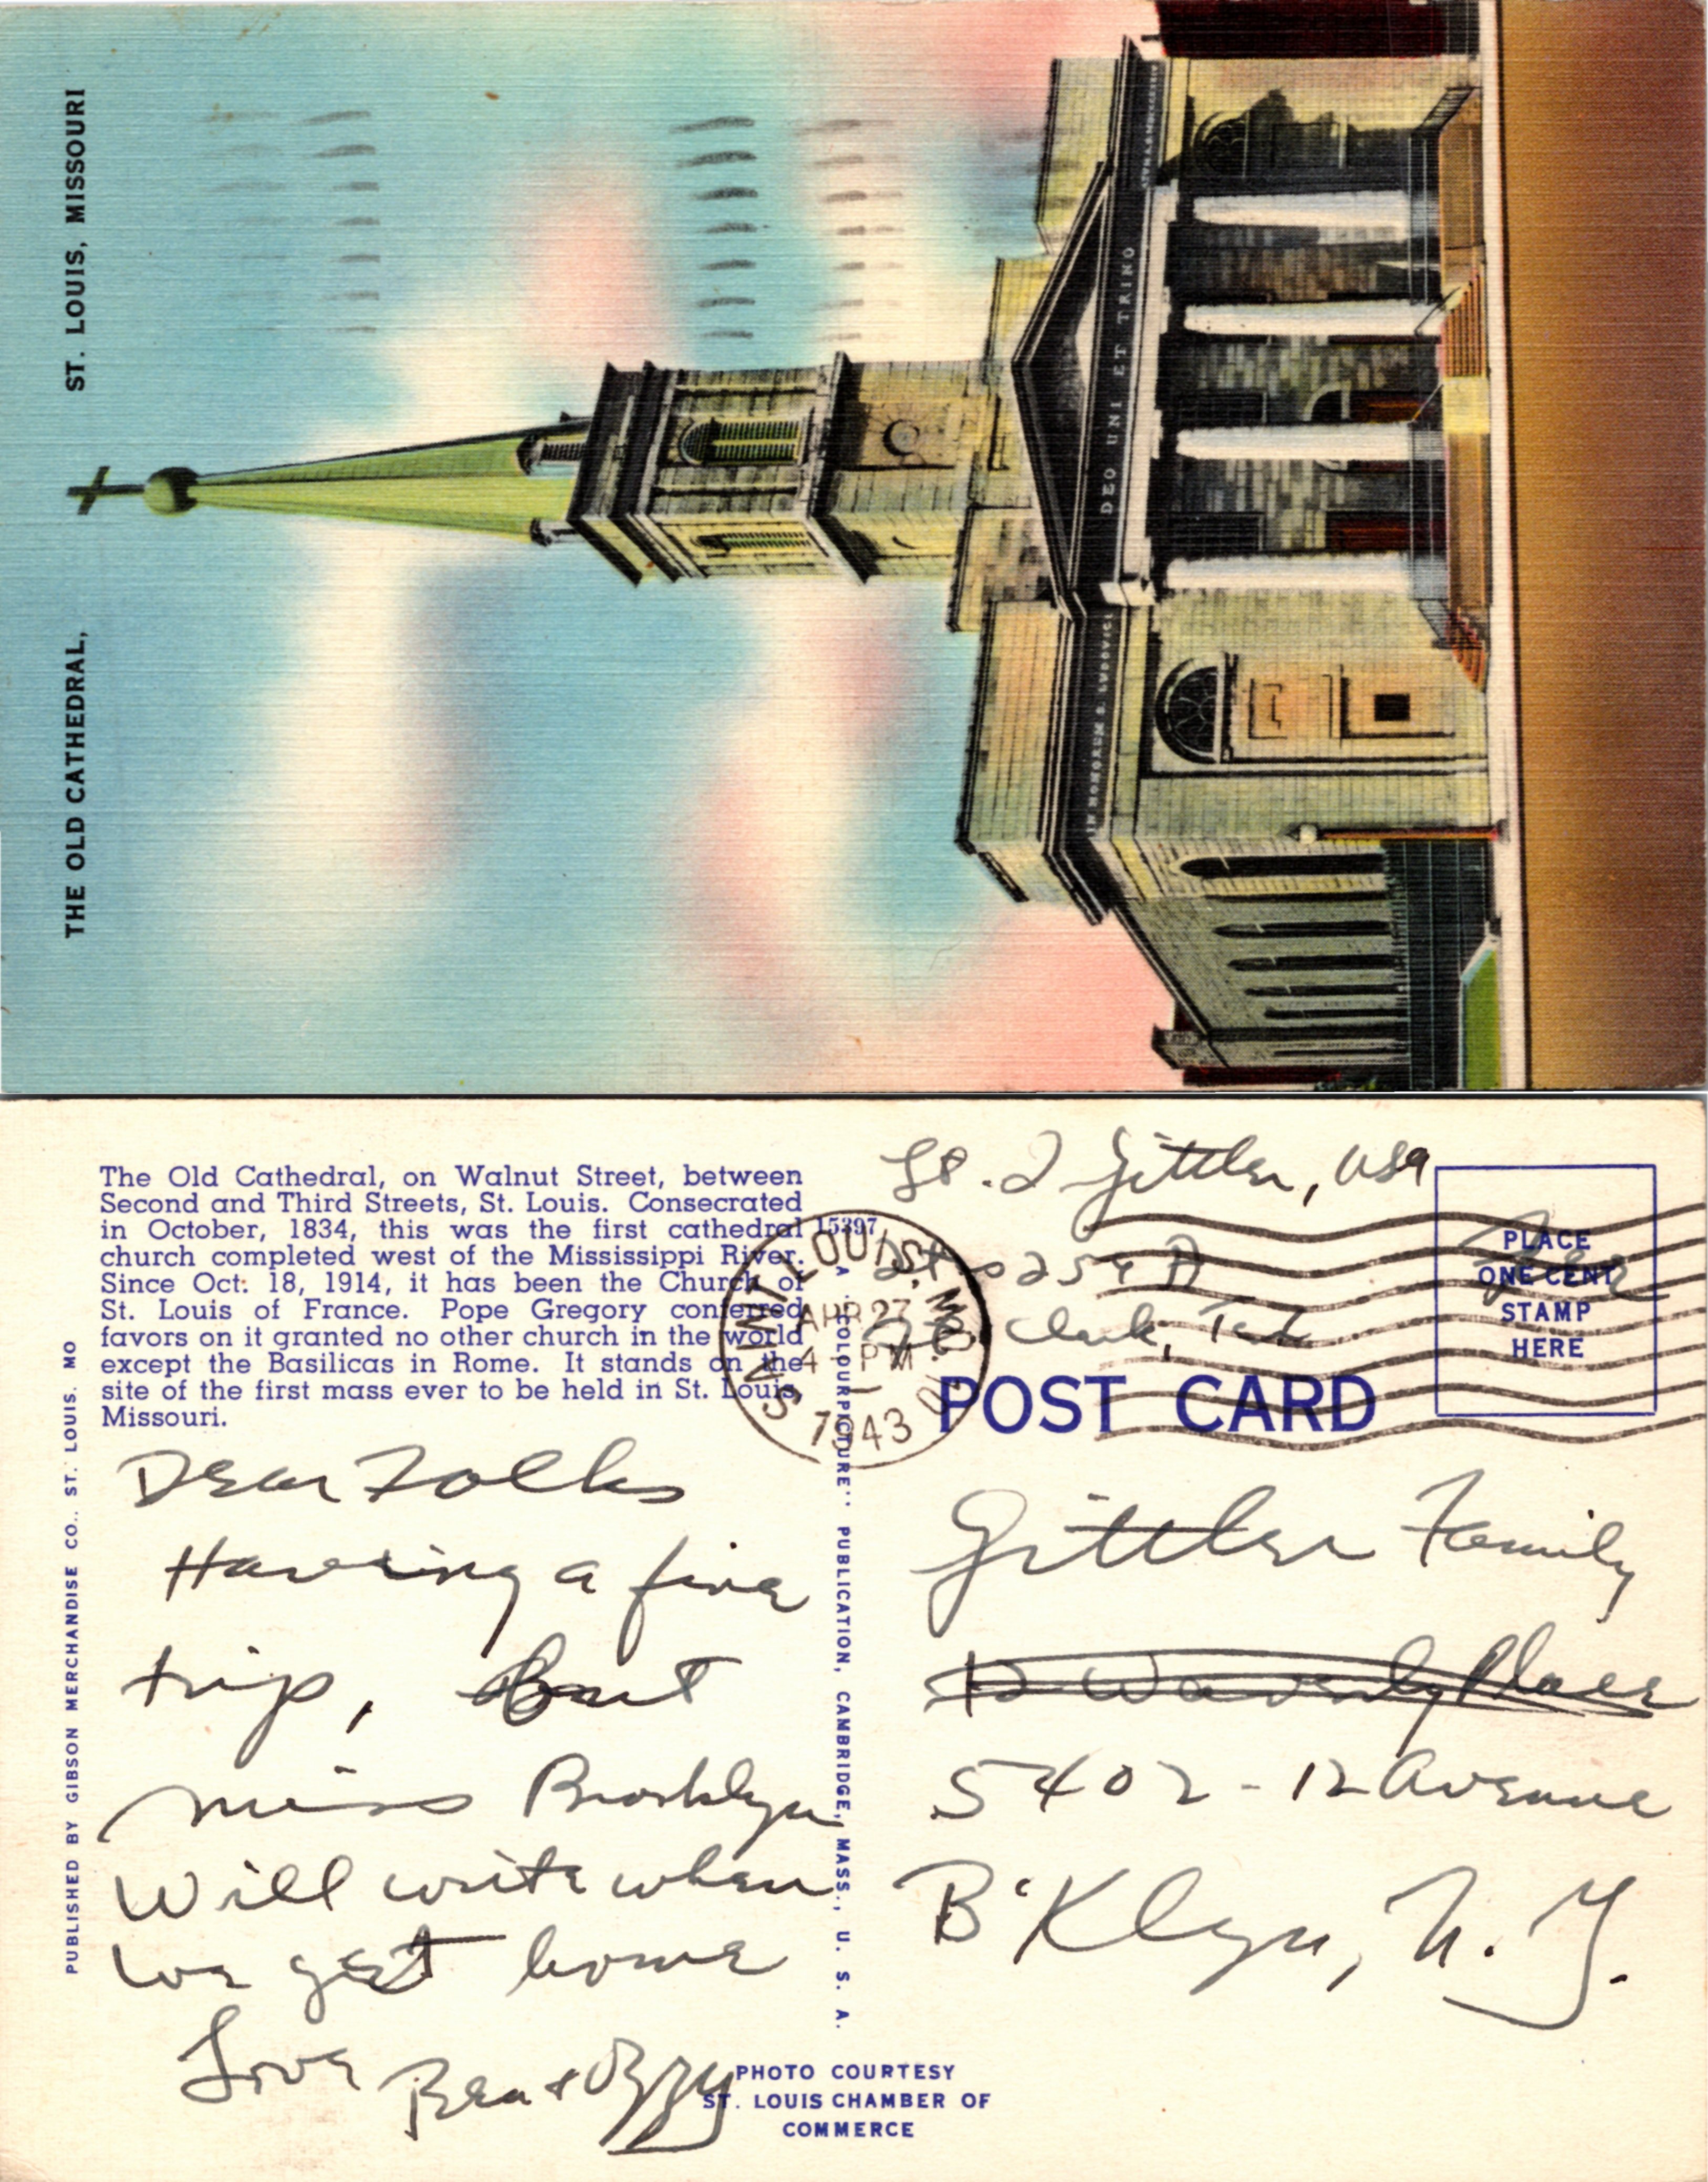 THE OLD CATHEDRAL, ST. LOUIS, MISSOURI
DEO UNI ET TRINO
IN HONOREM S. LUDOVICI
The Old Cathedral, on Walnut Street, between
Second and Third Streets, St. Louis. Consecrated
in October, 1834, this was the first cathedral
church completed west of the Mississippi River.
Since Oct: 18, 1914, it has been the Church of
St. Louis of France. Pope Gregory conferred
favors on it granted no other church in the world
except the Basilicas in Rome. It stands on the
site of the first mass ever to be held in St. Louis,
Missouri.
PUBLISHED BY GIBSON MERCHANDISE CO., ST. LOUIS. MO
15397
A "COLOURPICTURE" PUBLICATION, CAMBRIDGE, MASS., U. S. A.
SAINT LOUIS, MO.
APR 27
4 PM
1943
Lt. I Gittler, USA
Clark, Tex
Free
PLACE
ONE CENT
STAMP
HERE
POST CARD
Dear Folks
Having a fine
trip, but
miss Brooklyn
Will write when
we get home
Love Bea & Ozzy
Gittler Family
12 Waverly Place
5402 - 12 Avenue
B'Klyn, N. Y.
PHOTO COURTESY
ST. LOUIS CHAMBER OF
COMMERCE